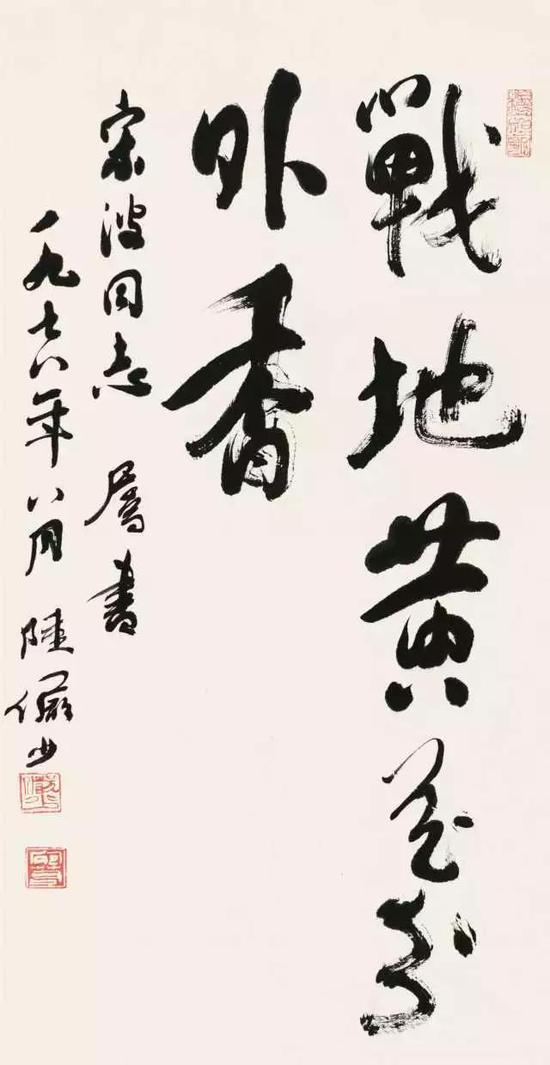 戰地黄花分
外香
宗波同志 属書
一九七八年八月 陸儼少